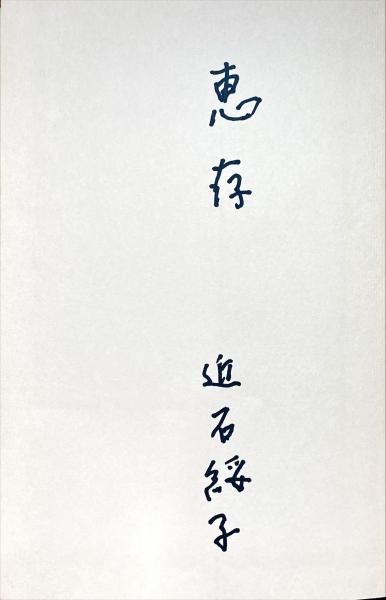 恵存
近石綏子